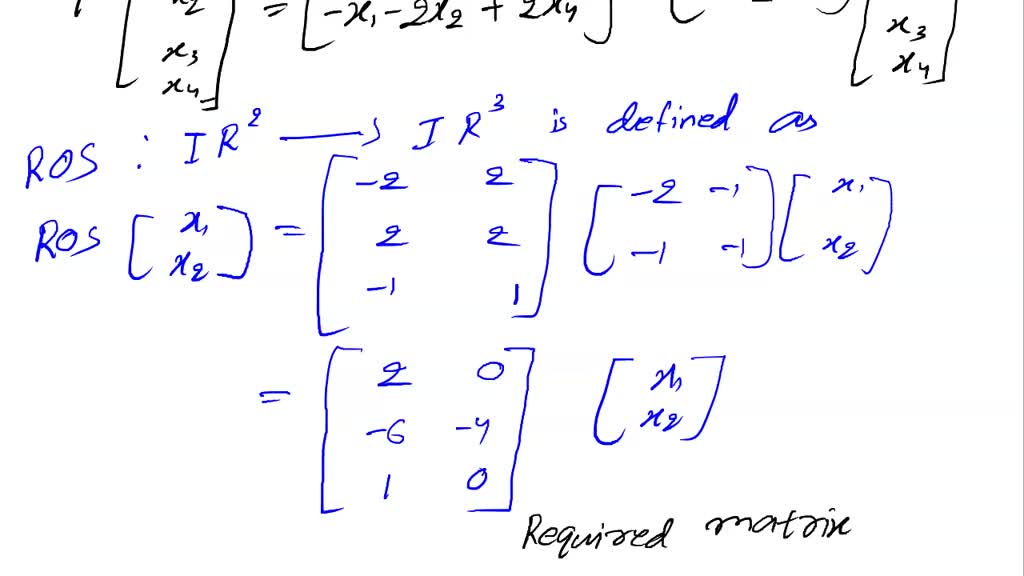 x2 = [-x1 - 2x2 + 2x4]
x3 x3
x4 x4
ROS : IR² → IR³ is defined as
ROS [x1 x2] = [-2 2 2 2 -1 1] [-2 -1 -1 -1] [x1 x2]
= [2 0 -6 -4 1 0] [x1 x2]
Required matrix